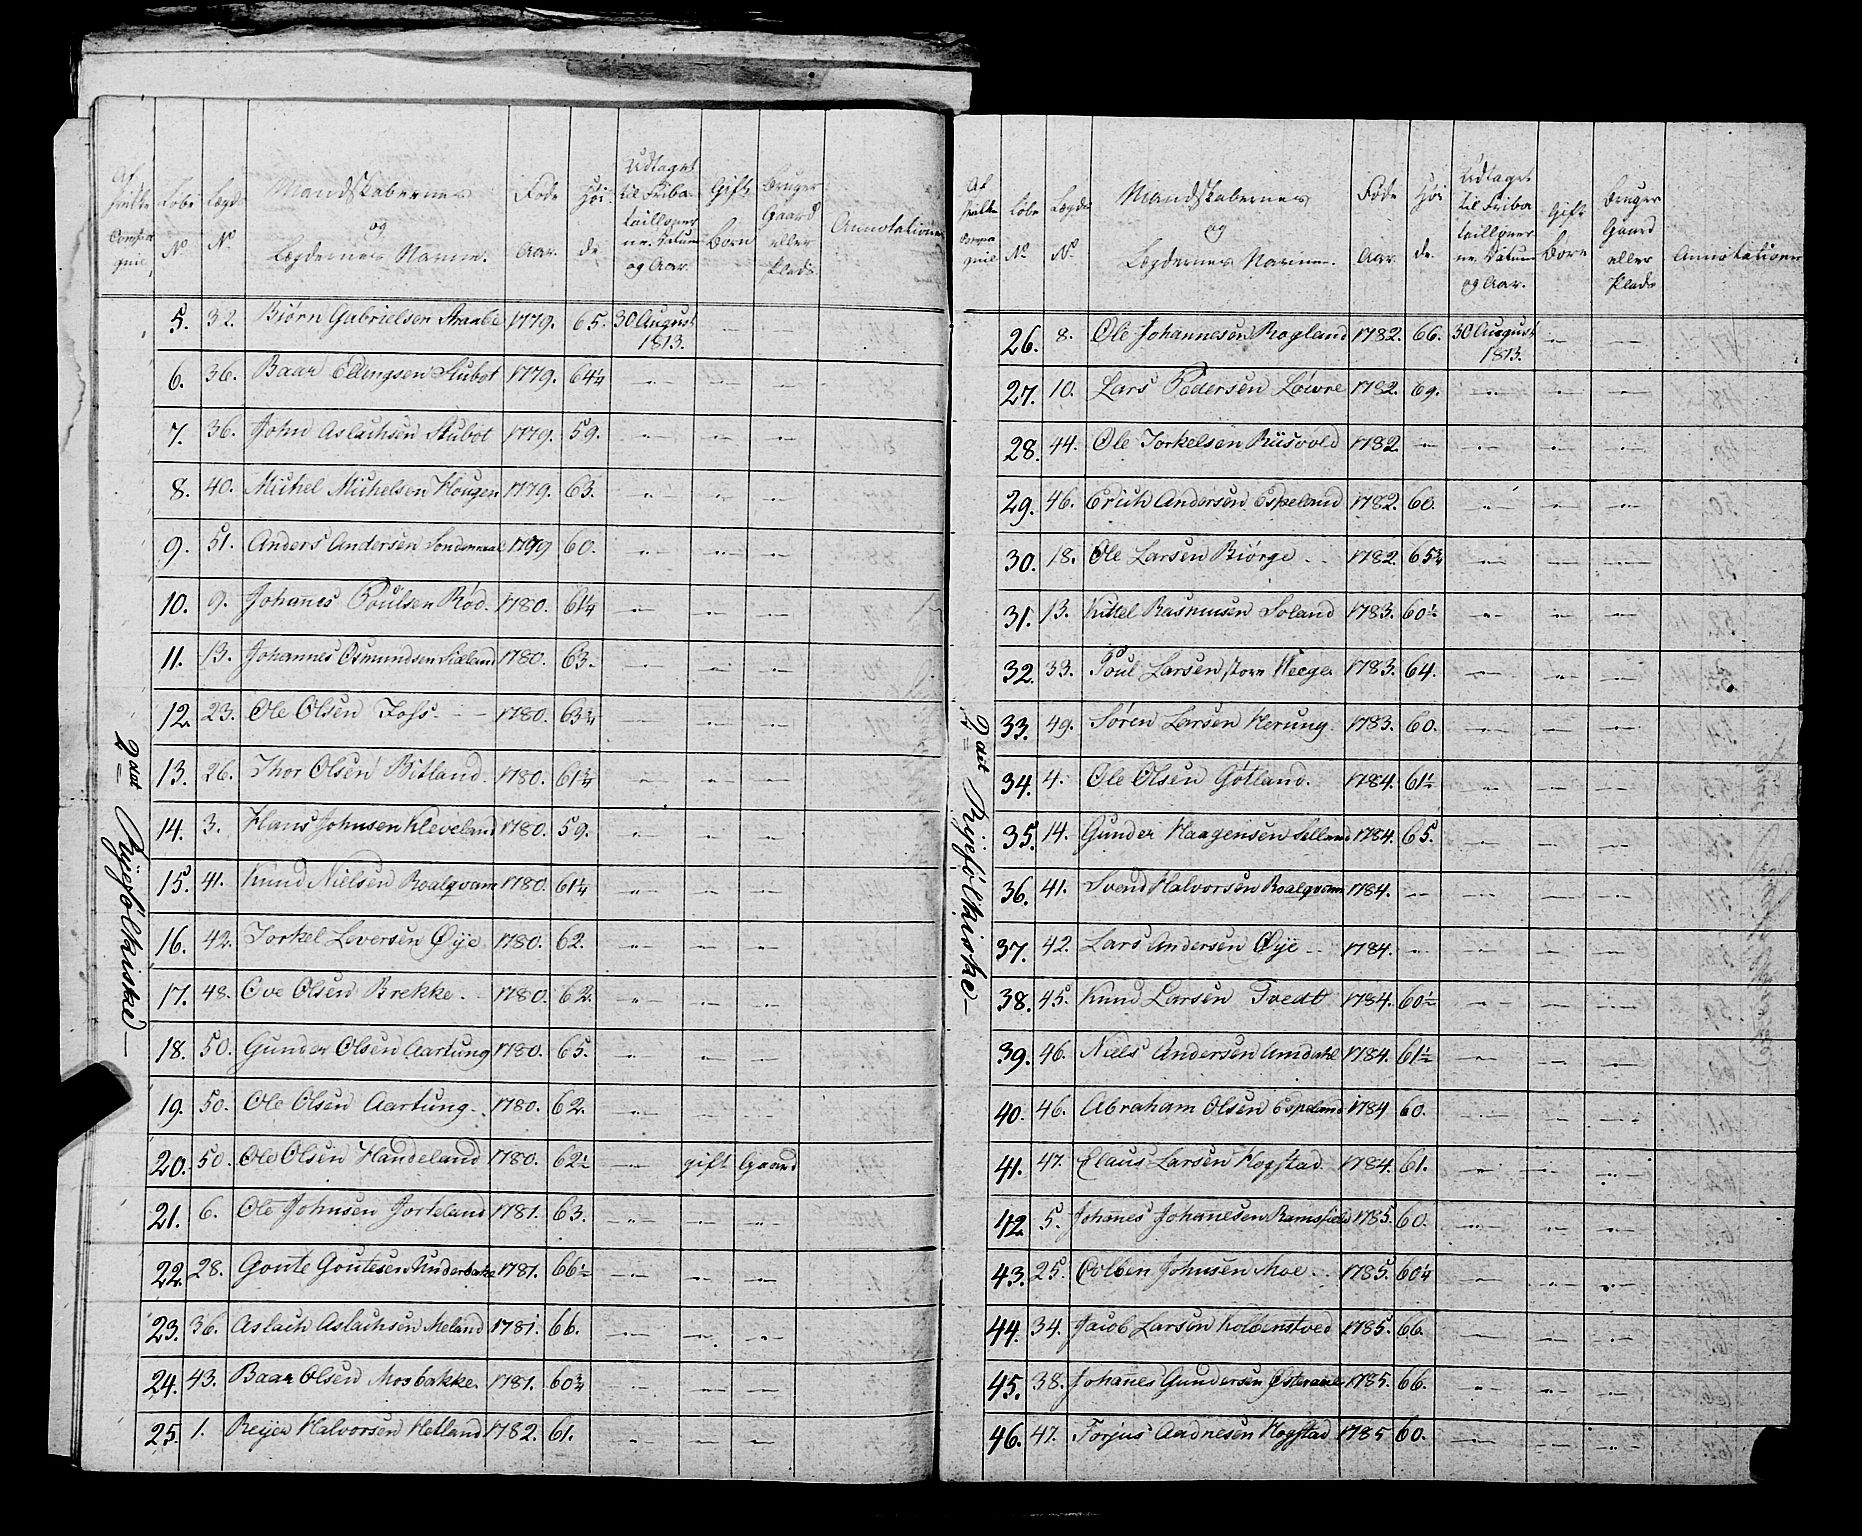 Af hvilke Compagnie | Løbe No | Lægds No | Mandskabernes og Lægdernes Navne. | Føde Aar. | Høide | Udtaget til Fribataillonerne. Datum og Aar. | Gift Børn | Bruger Gaard eller Plads | Annotationer
2det Ryefÿlkiske
5. 32. Biørn Gabrielsen 1779. 65. 30 August 1813. — —
6. 36. Baar Ellengsen Stubøt 1779. 64¼ — — —
7. 36. John Aslachsen Stubøt 1779. 59. — — —
8. 40. Michel Michelsen Hougen 1779. 63. — — —
9. 51. Anders Andersen 1799 60. — — —
10. 9. Johanes Poulsen Rød. 1780. 61¼ — — —
11. 13. Johannes Osmundsen 1780. 63. — — —
12. 23. Ole Olsen Foss. 1780. 63¼ — — —
13. 26. Thor Olsen Birland. 1780. 61¾ — — —
14. 3. Hans Johnsen Kleveland 1780. 59. — — —
15. 41. Knud Nielsen Roalqvam 1780. 61¼ — — —
16. 42. Torkel Leversen Øÿe 1780. 62. — — —
17. 48. Ove Olsen Brekke. 1780. 62. — — —
18. 50. Gunder Olsen Aartung 1780. 65. — — —
19. 50. Ole Olsen Aartung. 1780. 62. — — —
20. 50. Ole Olsen Handeland 1780. 62½ — gift Gaard
21. 6. Ole Johnsen 1781. 63. — — —
22. 28. Goute Goutesen Underbakke 1781. 66½ — — —
23. 36. Aslach Aslachsen Meland 1781. 66. — — —
24. 43. Baar Olsen Mosbakke. 1781. 60¾ — — —
25. 1. Reijer Halvorsen Hetland 1782. 61. — — —
Af hvilke Compagnie | Løbe No | Lægds No. | Mandskabernes og Lægdernes Navne. | Føde Aar. | Høide. | Udtaget til Fribataillonerne. Datum og Aar. | Gift Børn | Bruger Gaard eller Plads | Annotationer
2det Rÿefÿlkiske
26. 8. Ole Johannesen Rogland 1782. 66. 30 August 1813. — —
27. 10. Lars Pedersen Løivre 1782. 69. — — —
28. 44. Ole Torkelsen Riisvold 1782. — — — —
29. 46. Erich Andersen Espeland 1782. 60. — — —
30. 18. Ole Larsen Biørge 1782. 65¾ — — —
31. 13. Kittel Rasmusen Soland 1783. 60½ — — —
32. 33. Poul Larsen store Weege 1783. 64. — — —
33. 49. Søren Larsen Herung. 1783. 60. — — —
34. 4. Ole Olsen Gøtland. 1784. 61½ — — —
35. 14. Gunder Haagensen Selland 1784. 65. — — —
36. 41. Svend Halvorsen Roalqvam 1784. — — — —
37. 42. Lars Andersen Øye 1784. — — — —
38. 45. Knud Larsen Tvedt 1784. 60½ — — —
39. 46. Niels Andersen Amdahl 1784. 61½ — — —
40. 46. Abraham Olsen Espeland 1784 60. — — —
41. 47. Claus Larsen Hogstad. 1784. 61. — — —
42. 5. Johanes Johanesen Ramsfield 1785. 60. — — —
43. 25. Colben Johnsen Moe. 1785. 60¼ — — —
44. 34. Jacob Larsen Kolbenstved 1785. 66. — — —
45. 38. Johanes Gundersen 1785. 66. — — —
46. 47. Torjus Aadnesen Hogstad 1785 60. — — —